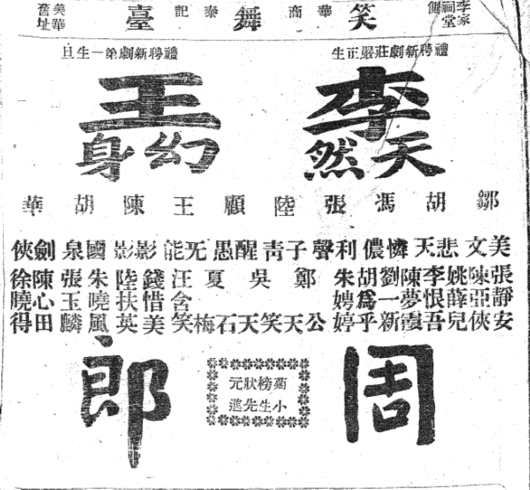 李家祠堂
笑舞臺
華商
泰記
美華舊址
禮聘新劇莊嚴正生
李天然
禮聘新劇第一生旦
王幻身
鄒胡馮張陸顧王陳胡華
美文悲天憐儂利聲子青醒愚旡能影影國泉劍俠
張陳姚李陳劉胡朱鄭吳夏汪錢陸朱張陳徐
靜亞薛恨夢一爲娉含惜扶曉玉心曉
安俠兒吾霞新乎婷公天笑天石梅笑美英風麟田得
周郎
菊榜狀元
小生先進